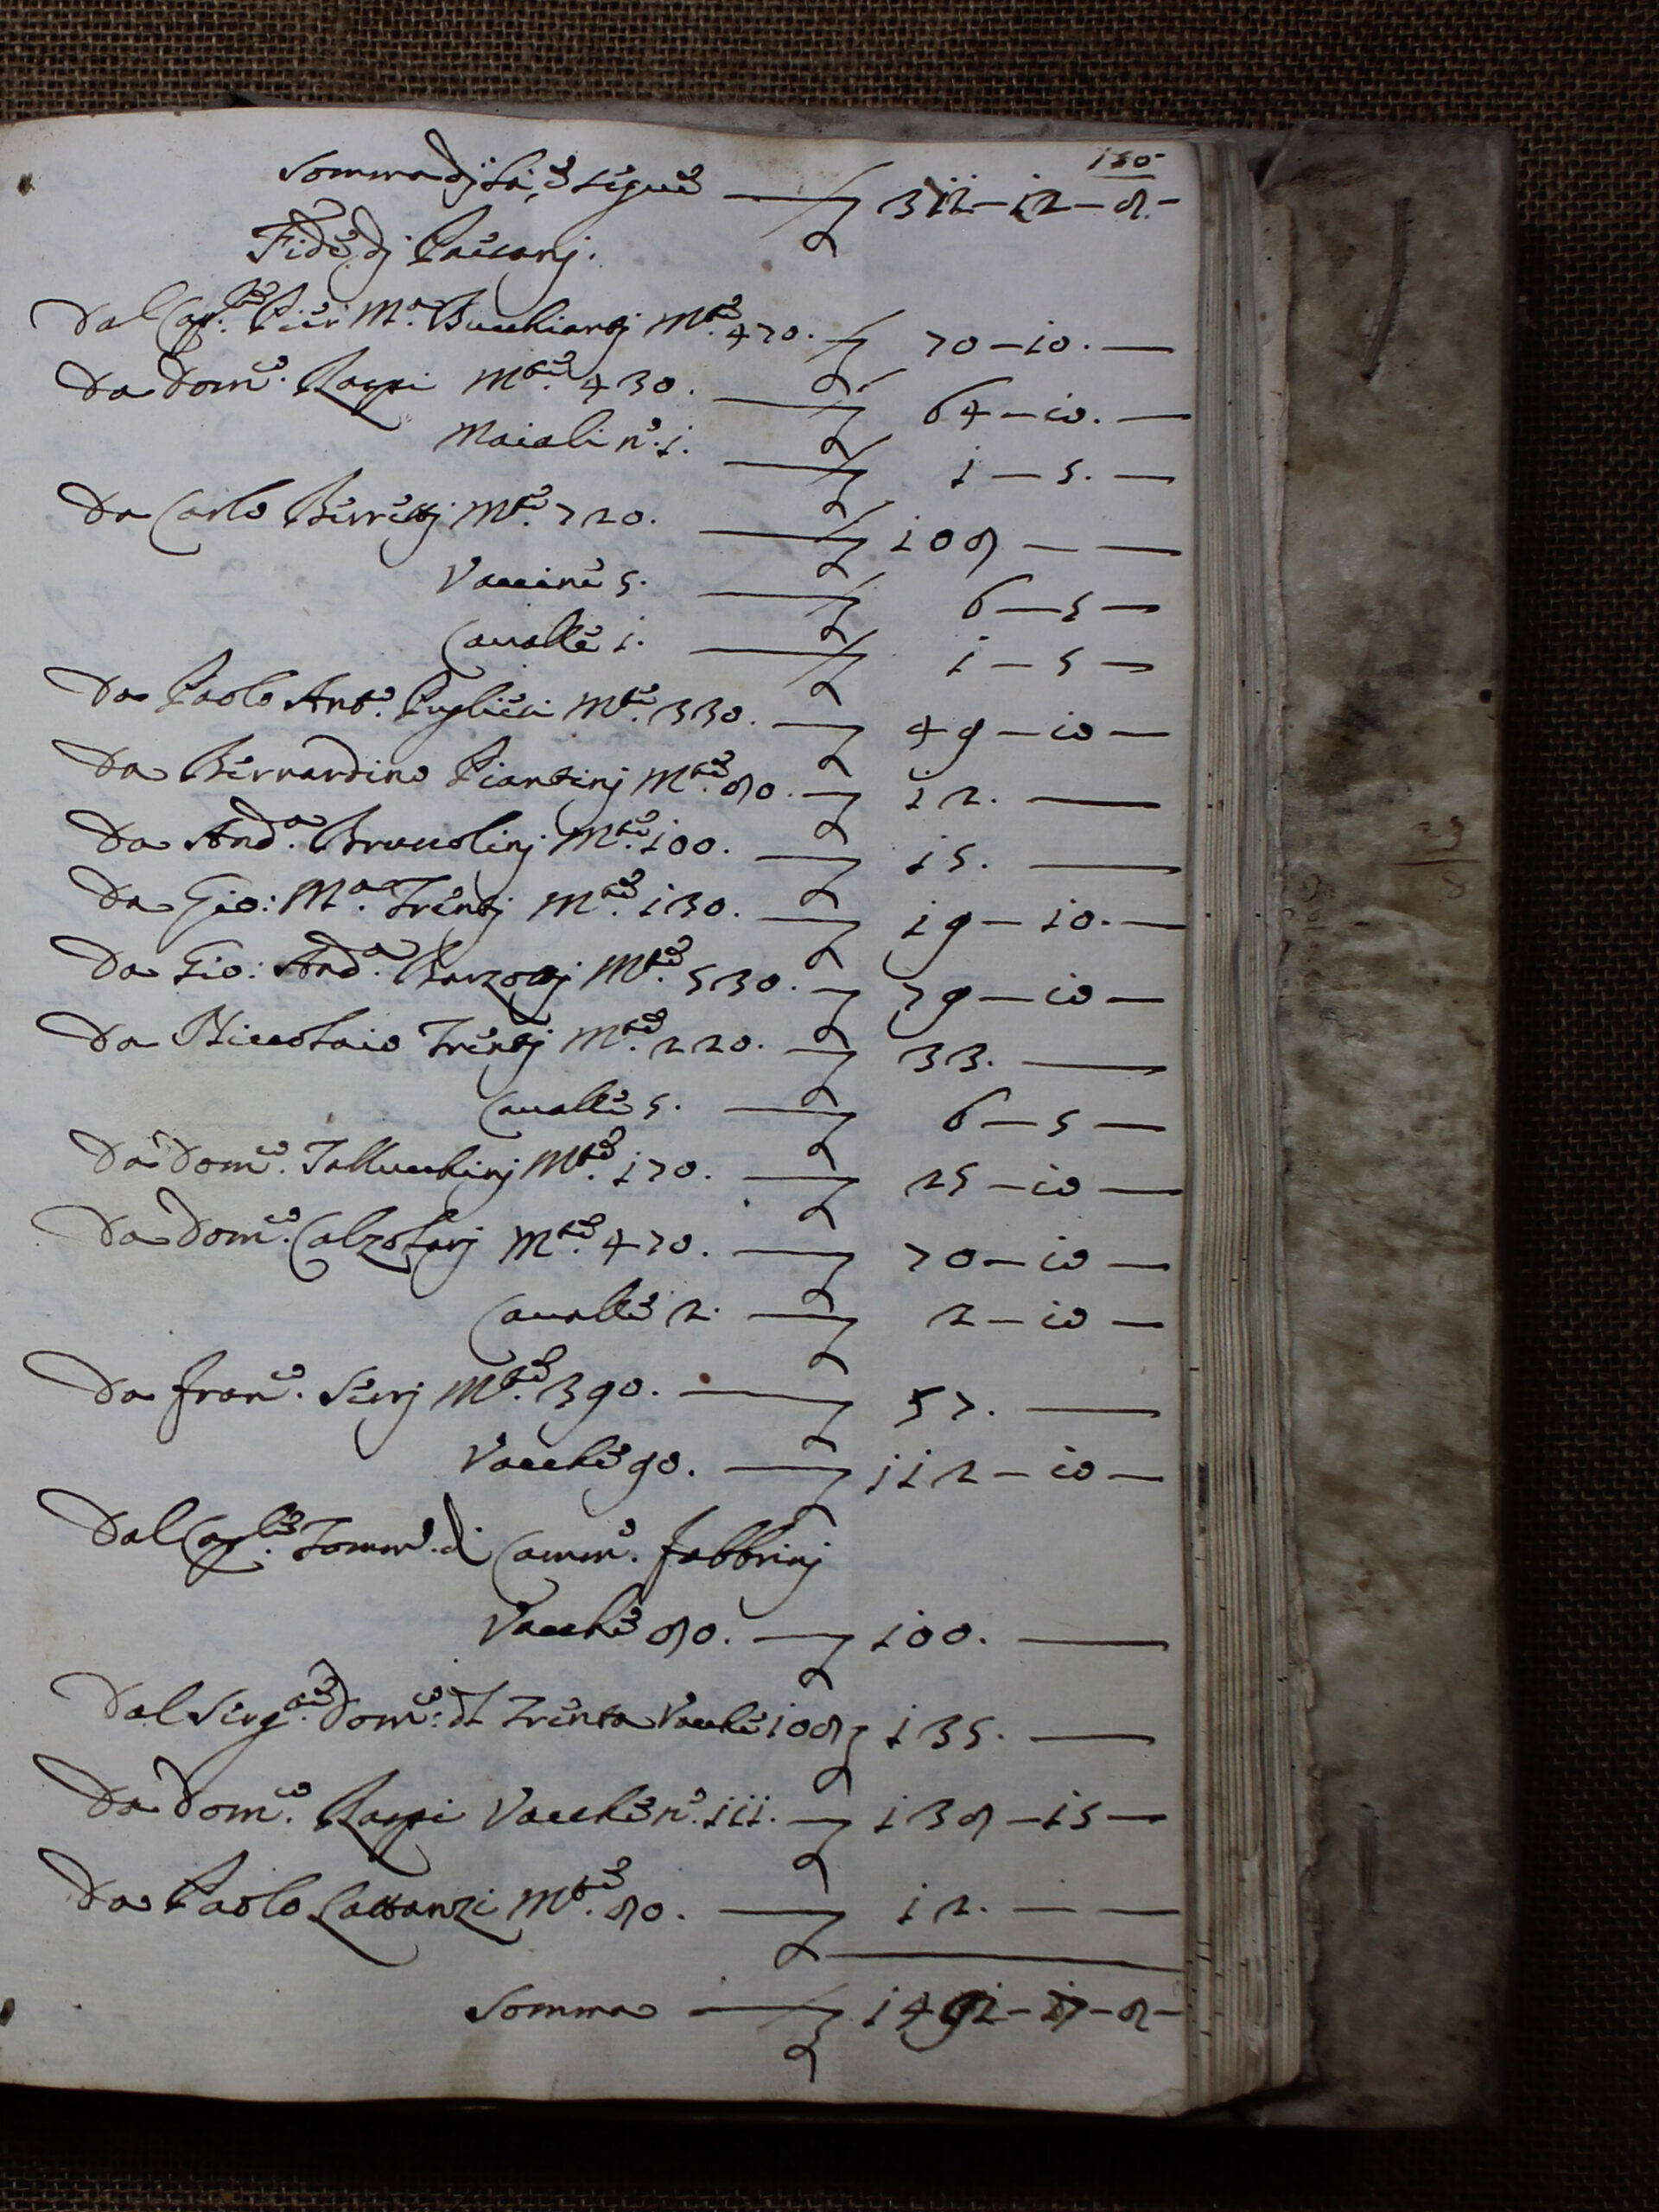 150
Somma di là, e segue — £ 311–12–8–
Fide di Paccianj.
Dal Cap.no Pier M.a Bucchiantj M.te 470. £ 70–10.—
Da Dom.o Rappi M.te 430. — £ 64–10.—
Maiali n.o 1. — £ 1–5.—
Da Carlo Berrettj M.te 720. — £ 108 — —
Vaccine 5. — £ 6–5–
Cavalle 1. — £ 1–5–
Da Paolo Ant.o Pugliesi M.te 330. — £ 49–10–
Da Bernardino Piantinj M.te 80. — £ 12. —
Da And.a Bruccolinj M.te 100. — £ 15. —
Da Gio: M.a Trentj M.te 130. — £ 19–10.—
Da Gio: And.a Barzottj M.te 530. — £ 79–10–
Da Niccolaio Trentj M.te 220. — £ 33. —
Cavalle 5. — £ 6–5–
Da Dom.o Tallucchinj M.te 170. — £ 25–10—
Da Dom.o Calzolarj M.te 470. — £ 70–10–
Cavalle 2. — £ 2–10–
Da Fran.o Serj M.te 390. — £ 57. —
Vacche 90. — £ 112–10–
Dal Cap.no Tomm.o di Camm.o Fabbrinj
Vacche 80. — £ 100. —
Dal Serg.te Dom.o del Trenta Vacche 108 £ 135. —
Da Dom.o Rappi Vacche n.o 111. — £ 138–15–
Da Paolo Lattanzi M.te 80. — £ 12. — —
Somma — £ 1491–17–8–